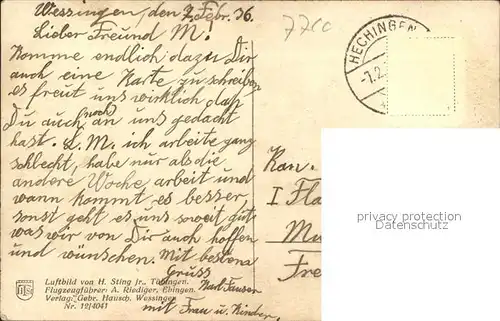 Wessingen, den 7. Febr. 36.
Lieber Freund M!
Komme endlich dazu Dir
auch eine Karte zu schreiben
es freut uns wirklich daß
Du auch noch an uns gedacht
hast. L. M. ich arbeite ganz
schlecht, habe nur als die
andere Woche arbeit und
wann kommt es besser,
sonst geht es uns soweit gut
was wir von Dir auch hoffen
und wünschen. Mit bestens
Gruss
Karl Fauser
mit Frau u. Kinder,
Luftbild von H. Sting jr., Tübingen.
Flugzeugführer: A. Riediger, Ebingen.
Verlag: Gebr. Hausch, Wessingen
Nr. 12/4041
7700
HECHINGEN
-7.2.
Kan.
I Fla
Mu
Fre
privacy protection
Datenschutz